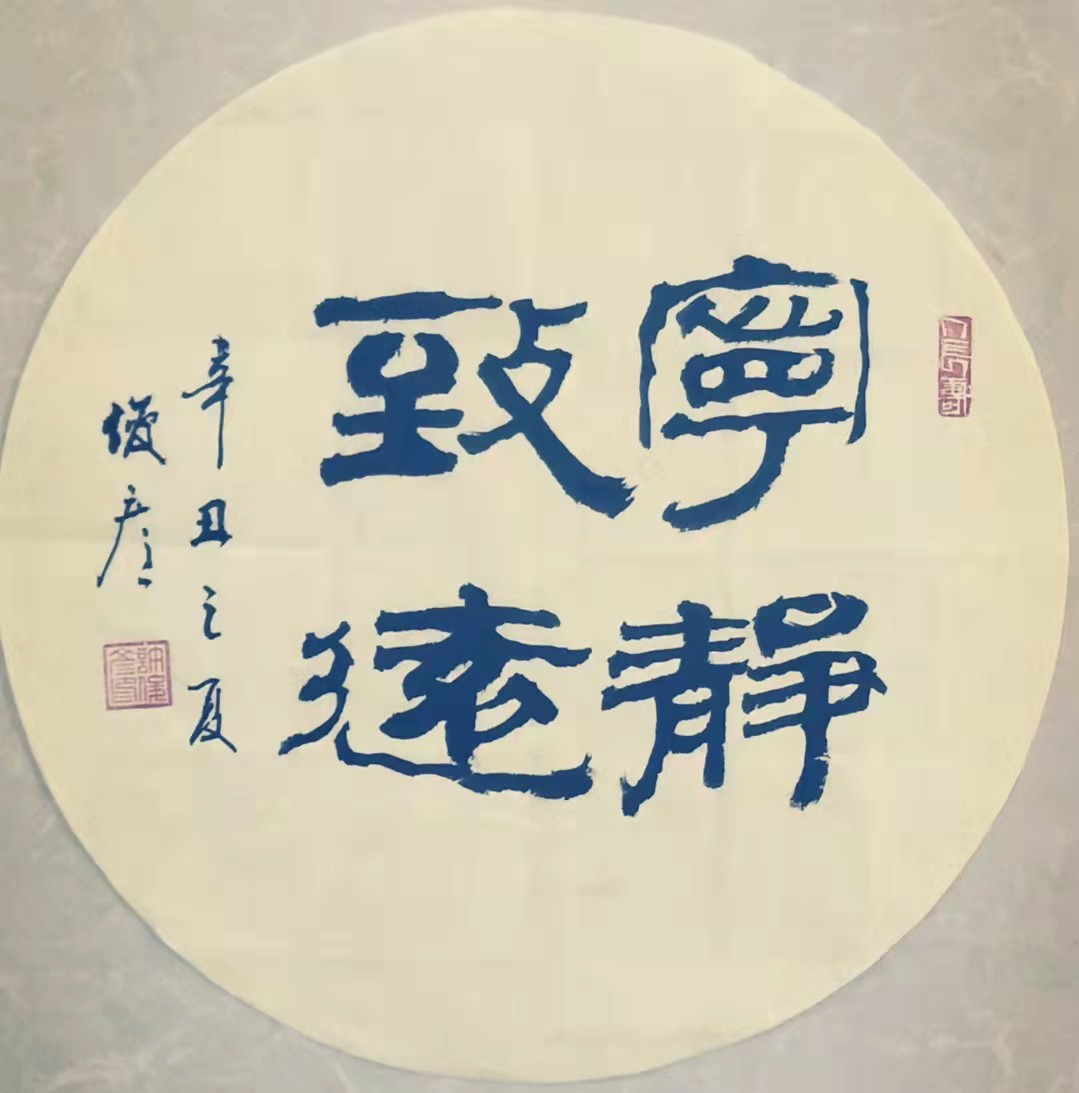 寧靜
致遠
辛丑之夏